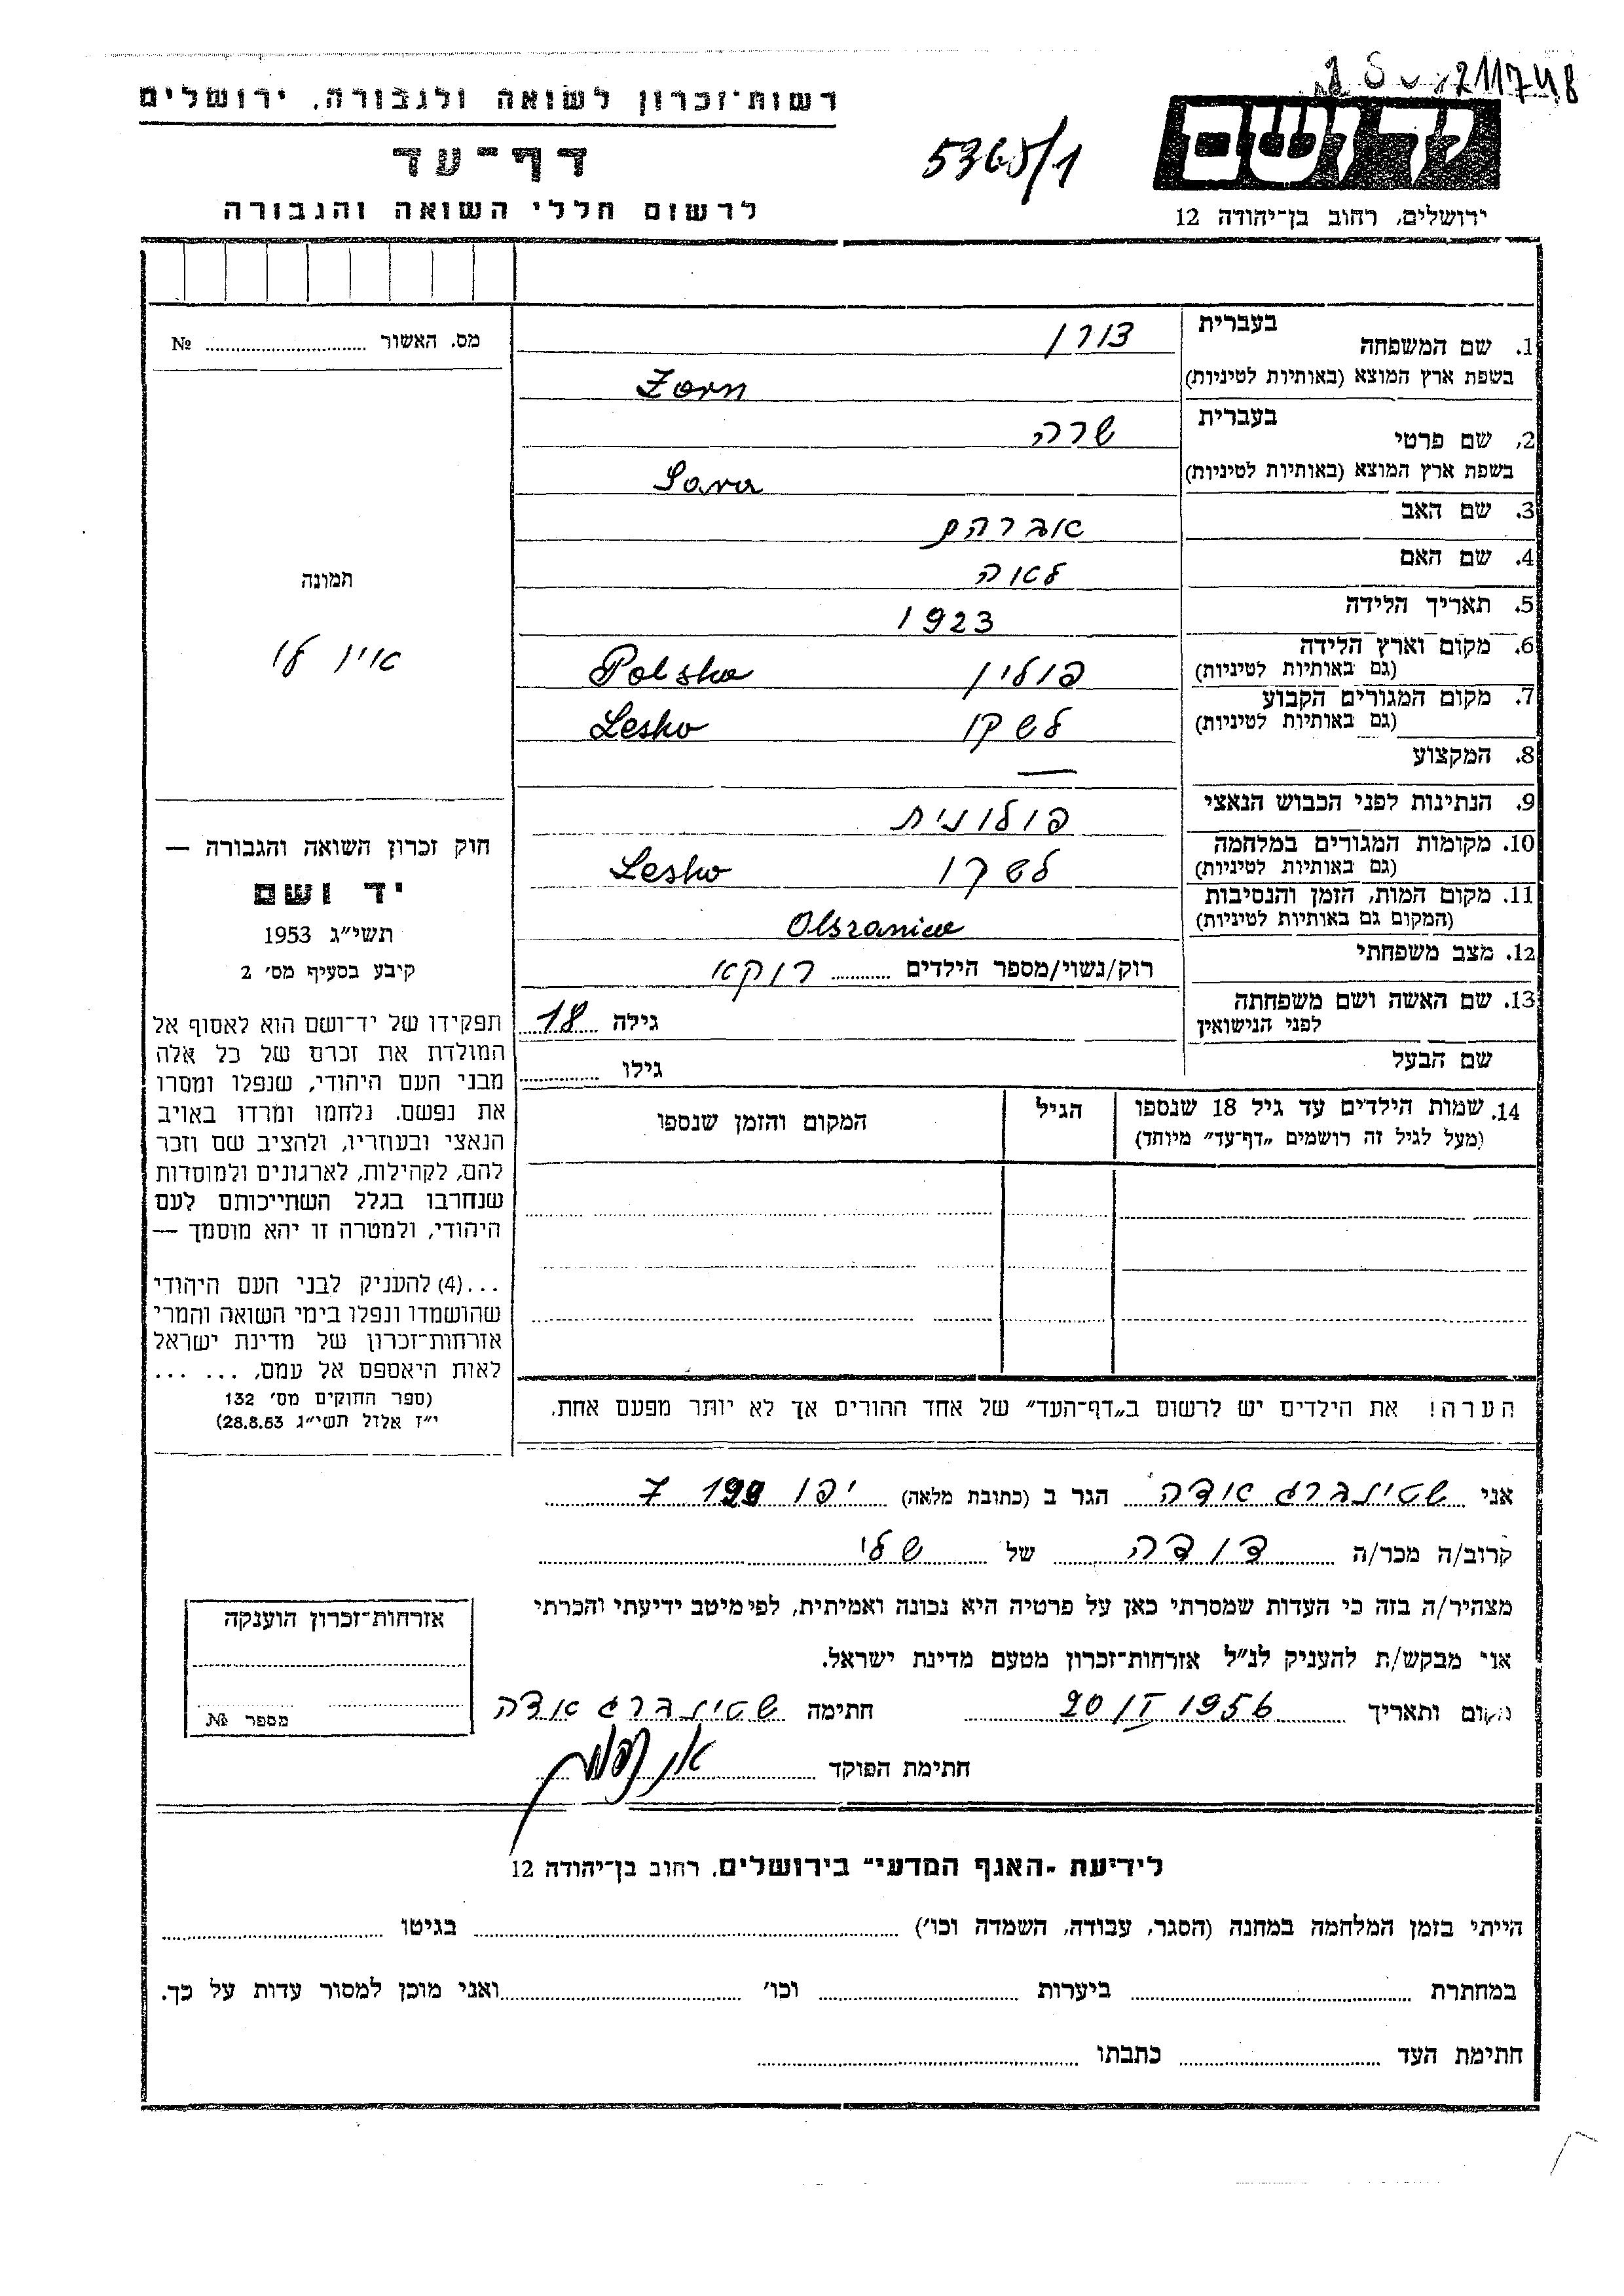 211748
רשות־זכרון לשואה ולגבורה, ירושלים
דף־עד
לרשום חללי השואה והגבורה
5365/1
יד ושם
ירושלים, רחוב בן־יהודה 12
מס. האשור № 
1. שם המשפחה בעברית צורן
בשפת ארץ המוצא (באותיות לטיניות) Zorn
2. שם פרטי בעברית שרה
בשפת ארץ המוצא (באותיות לטיניות) Sara
3. שם האב אברהם
4. שם האם לאה
5. תאריך הלידה 1923
6. מקום וארץ הלידה
(גם באותיות לטיניות) פולין Polska
7. מקום המגורים הקבוע
(גם באותיות לטיניות) לשקו Lesko
8. המקצוע —
9. הנתינות לפני הכבוש הנאצי פולונית
10. מקומות המגורים במלחמה
(גם באותיות לטיניות) לשקו Lesko
11. מקום המות, הזמן והנסיבות
(המקום גם באותיות לטיניות) Olszanice
12. מצב משפחתי רוק/נשוי/מספר הילדים רוקא
13. שם האשה ושם משפחתה
לפני הנישואין גילה 18
שם הבעל גילו
14. שמות הילדים עד גיל 18 שנספו
(מעל לגיל זה רושמים „דף־עד” מיוחד)
הגיל
המקום והזמן שנספו
הערה! את הילדים יש לרשום ב„דף־העד” של אחד ההורים אך לא יותר מפעם אחת.
תמונה
אין לי
חוק זכרון השואה והגבורה —
יד ושם
תשי״ג 1953
קיבע בסעיף מס׳ 2
תפקידו של יד־ושם הוא לאסוף אל
המולדת את זכרם של כל אלה
מבני העם היהודי, שנפלו ומסרו
את נפשם. נלחמו ומרדו באויב
הנאצי ובעוזריו, ולהציב שם וזכר
להם, לקהילות, לארגונים ולמוסדות
שנחרבו בגלל השתייכותם לעם
היהודי, ולמטרה זו יהא מוסמך —
...(4) להעניק לבני העם היהודי
שהושמדו ונפלו בימי השואה והמרי
אזרחות־זכרון של מדינת ישראל
לאות היאספם אל עמם, ... ...
(ספר החוקים מס׳ 132
י״ז אלול תשי״ג 28.8.53)
אני שטינברג אדה הגר ב (כתובת מלאה) יפו 7
קרוב/ה מכר/ה דודה של שלי
מצהיר/ה בזה כי העדות שמסרתי כאן על פרטיה היא נכונה ואמיתית, לפי מיטב ידיעתי והכרתי
אני מבקש/ת להעניק לנ״ל אזרחות־זכרון מטעם מדינת ישראל.
מקום ותאריך 20 IX 1956 חתימה שטינברג אדה
חתימת הפוקד
אזרחות־זכרון הוענקה
מספר №
לידיעת „האגף המדעי” בירושלים, רחוב בן־יהודה 12
הייתי בזמן המלחמה במחנה (הסגר, עבודה, השמדה וכו׳) בגיטו
במחתרת ביערות וכו׳ ואני מוכן למסור עדות על כך.
חתימת העד כתבתו